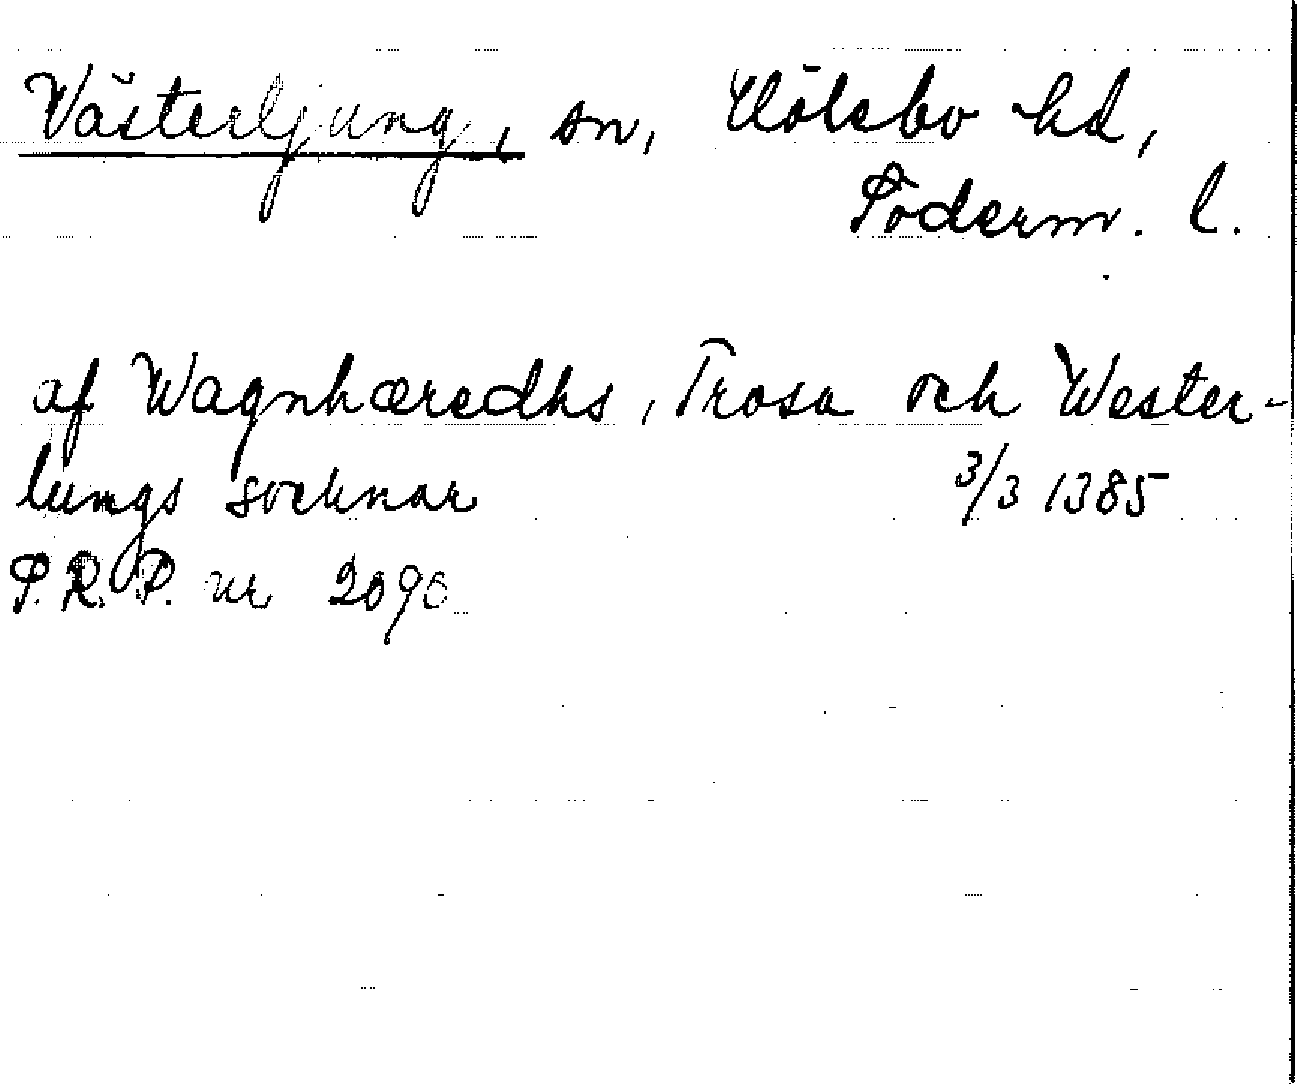 Västerljung, sn, Hölebo hd,
Söderm. l.
af Wagnhæredhs, Trosa och Wester-
lungs socknar 3/3 1385
S.R.P. nr 2090